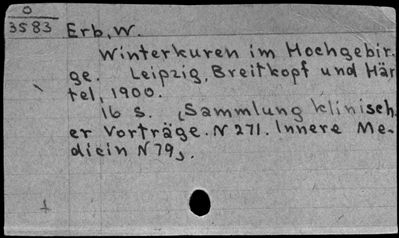 O
3583 Erb, W.
Winterkuren im Hochgebir-
ge. Leipzig, Breitkopf und Här
tel, 1900.
16 s. (Sammlung klinisch.
er Vorträge. N 271. Innere Me-
dicin N 79).
1